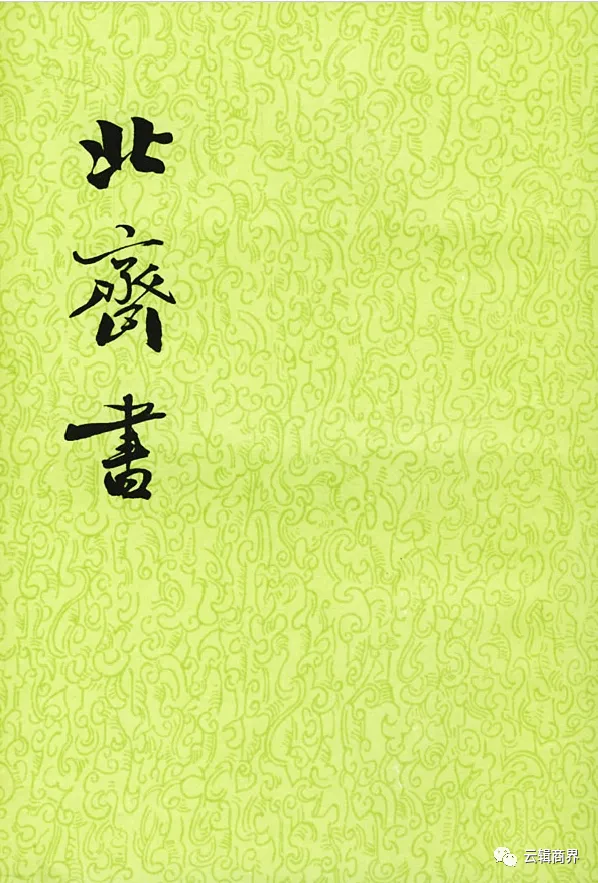 北齊書
云辑商界